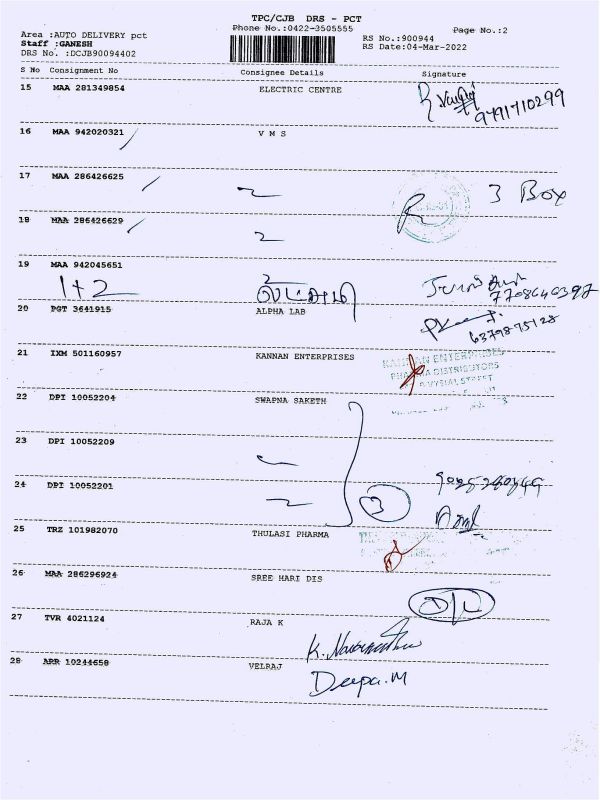 TPC/CJB DRS - PCT
Phone No.:0422-3505555
Page No.:2
Area :AUTO DELIVERY pct
RS No.:900944
Staff :GANESH
RS Date:04-Mar-2022
DRS No. :DCJB90094402
S No Consignment No Consignee Details Signature
15 MAA 281349854 ELECTRIC CENTRE
9791710299
16 MAA 942020321 V M S
17 MAA 286426625
3 Box
18 MAA 286426629
19 MAA 942045651
1+2
7708640397
20 PGT 3641915 ALPHA LAB
6379875128
21 IXM 501160957 KANNAN ENTERPRISES
KANNAN ENTERPRISES
PHARMA DISTRIBUTORS
VYSIAL STREET
22 DPI 10052204 SWAPNA SAKETH
23 DPI 10052209
24 DPI 10052201
3
25 TRZ 101982070 THULASI PHARMA
26 MAA 286296924 SREE HARI DIS
27 TVR 4021124 RAJA K
28 ARR 10244658 VELRAJ
Deepa.M